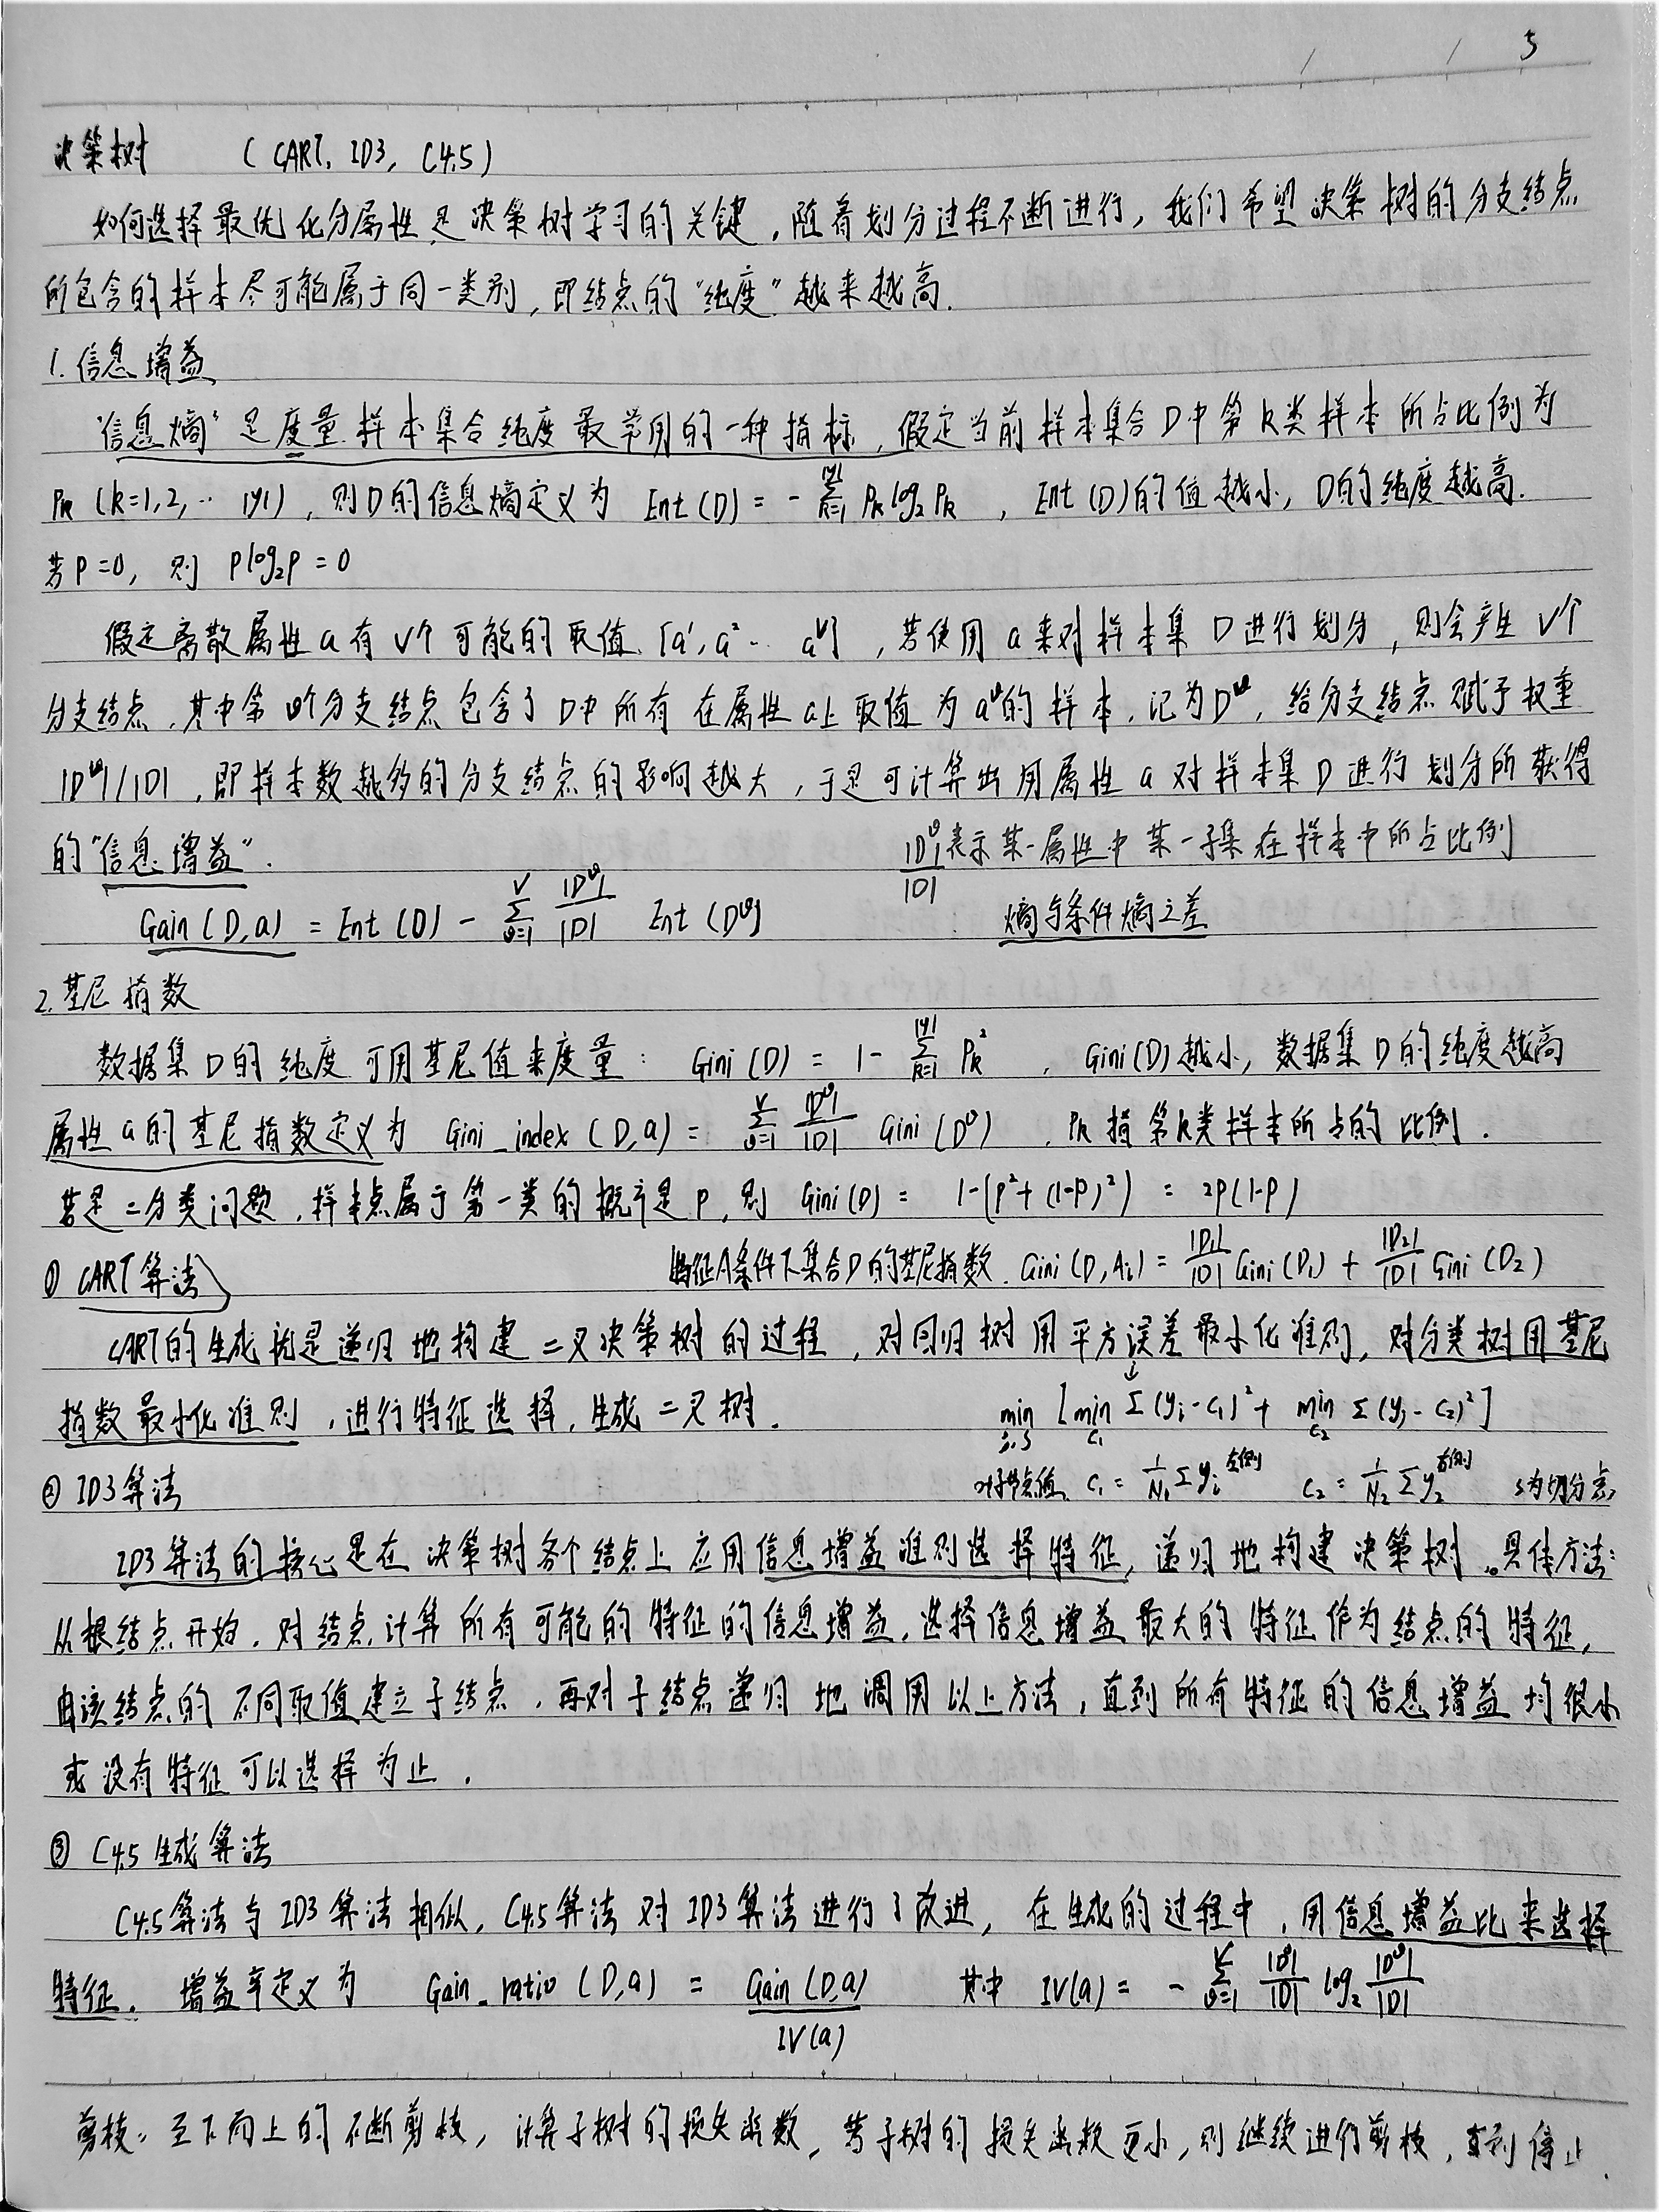 5
决策树 (CART, ID3, C4.5)
如何选择最优化分属性是决策树学习的关键,随着划分过程不断进行,我们希望决策树的分支结点
所包含的样本尽可能属于同一类别,即结点的“纯度”越来越高.
1. 信息增益
“信息熵”是度量样本集合纯度最常用的一种指标,假定当前样本集合D中第k类样本所占比例为
Pk (k=1,2,… |y|),则D的信息熵定义为 Ent(D) = - Σ_{k=1}^{|y|} Pk log₂ Pk , Ent(D)的值越小,D的纯度越高.
若P=0, 则 Plog₂P = 0
假定离散属性a有V个可能的取值{a¹, a² … aᵛ},若使用a来对样本集D进行划分,则会产生V个
分支结点,其中第v个分支结点包含了D中所有在属性a上取值为aᵛ的样本,记为Dᵛ,给分支结点赋予权重
|Dᵛ|/|D|,即样本数越多的分支结点的影响越大,于是可计算出用属性a对样本集D进行划分所获得
的“信息增益”. |Dᵛ|/|D| 表示某一属性中某一子集在样本中所占比例
Gain(D,a) = Ent(D) - Σ_{v=1}^{V} |Dᵛ|/|D| Ent(Dᵛ) 熵与条件熵之差
2. 基尼指数
数据集D的纯度可用基尼值来度量: Gini(D) = 1 - Σ_{k=1}^{|y|} Pk² , Gini(D)越小,数据集D的纯度越高
属性a的基尼指数定义为 Gini_index(D,a) = Σ_{v=1}^{V} |Dᵛ|/|D| Gini(Dᵛ) , Pk指第k类样本所占的比例.
若是二分类问题,样本点属于第一类的概率是P,则 Gini(P) = 1-(P²+(1-P)²) = 2P(1-P)
特征A条件下集合D的基尼指数. Gini(D,Ai) = |D₁|/|D| Gini(D₁) + |D₂|/|D| Gini(D₂)
① CART算法
CART的生成就是递归地构建二叉决策树的过程,对回归树用平方误差最小化准则,对分类树用基尼
指数最小化准则,进行特征选择,生成二叉树. min_{j,s} [min_{c₁} Σ(yi-c₁)² + min_{c₂} Σ(yi-c₂)²]
叶子节点值 c₁ = 1/N₁ Σyi 左侧 c₂ = 1/N₂ Σy₂ 右侧 s为切分点
② ID3算法
ID3算法的核心是在决策树各个结点上应用信息增益准则选择特征,递归地构建决策树。具体方法:
从根结点开始,对结点计算所有可能的特征的信息增益,选择信息增益最大的特征作为结点的特征,
由该结点的不同取值建立子结点,再对子结点递归地调用以上方法,直到所有特征的信息增益均很小
或没有特征可以选择为止.
③ C4.5生成算法
C4.5算法与ID3算法相似,C4.5算法对ID3算法进行了改进,在生成的过程中,用信息增益比来选择
特征. 增益率定义为 Gain_ratio(D,a) = Gain(D,a)/IV(a) 其中 IV(a) = - Σ_{v=1}^{V} |Dᵛ|/|D| log₂ |Dᵛ|/|D|
剪枝:至下而上的不断剪枝,计算子树的损失函数,若子树的损失函数更小,则继续进行剪枝,直到停止.